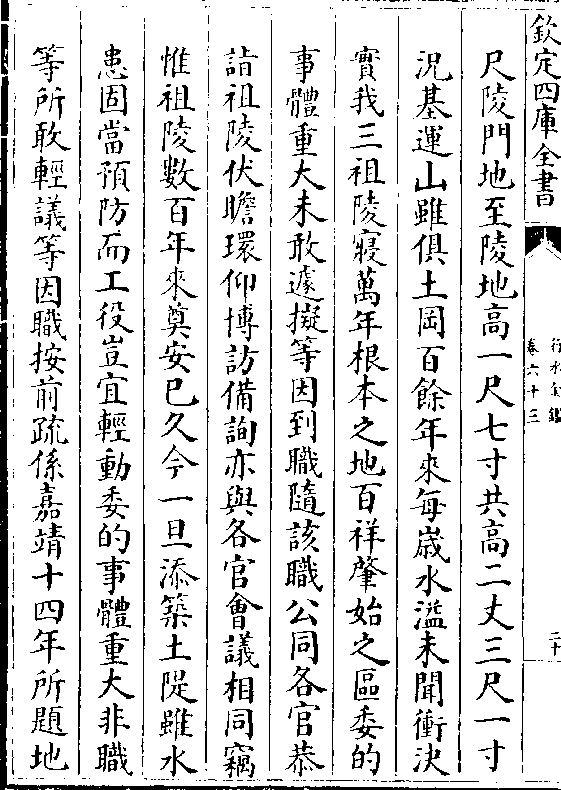 欽定四庫全書
行水金鑑
卷六十三
二十
尺陵門地至陵地高一尺七寸共高二丈三尺一寸
況基運山雖俱土岡百餘年來每歲水溢未聞衝決
實我三祖陵寢萬年根本之地百祥肇始之區委的
事體重大未敢遽擬等因到職隨該職公同各官恭
詣祖陵伏瞻環仰博訪備詢亦與各官會議相同竊
惟祖陵數百年來奠安已久今一旦添築土隄雖水
患固當預防而工役豈宜輕動委的事體重大非職
等所敢輕議等因職按前疏係嘉靖十四年所題地